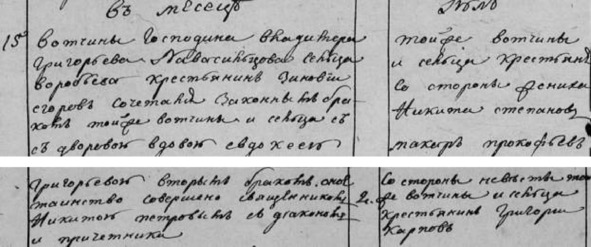 въ месецѣ
15
вотчины Господина владимера
григорьева Навасильцова сельца
воробьева крестьянинъ Зиновии
егоровъ сочетанъ Законнымъ бра-
комъ тойже вотчины и сельца съ
съ дворовою вдовою евдокеею
григорьевою вторымъ бракомъ. оное
таинство совершено священникомъ
Никитою петровымъ съ диакономъ
и причетники
тойже вотчины
и сельца крестьяне
Со стороны жениха
Никита степановъ
макаръ прокофьевъ
Со стороны невесты той
же вотчины и сельца
крестьянинъ григории
Карповъ